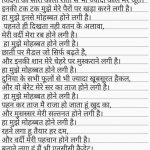 इनकी टक टक मुझे मेरे पैरों पर खड़ा करने लगी है।
हां मुझे इनसे मोहब्बत होने लगी है।
पहनते ही दिखता नही वतन के अलावा,
मेरी वर्दी मेरा रब होने लगी है।
हां मुझे मोहब्बत होने लगी है।
छाती पर मैडल जो सिर्फ बढ़ते है,
और इनकी शान मेरे चेहरे पर मुस्कराने लगी है।
हां मुझे मोहब्बत होने लगी है।
दुनिया के सभी फूलों से भी ज्यादा खूबसूरत है
और वो बेरेट मेरे सर का ताज होने लगी है।
हां मुझे मोहब्बत होने लगी है।
पहन कर ताज मै राजा हो जाता हूं खुद का,
और मुशक्कत मेरी सल्तनत होने लगी है।
हां मुझे मोहब्बत होने लगी है।
रहने लगा हूं तैयार हर दम,
और वर्दी मेरी पहचान होने लगी है।